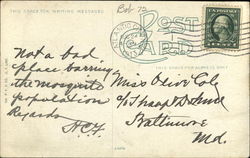 Bob 72
THIS SPACE FOR WRITING MESSAGES
POST
CARD
THIS SPACE FOR ADDRESS ONLY
Not a bad
place barring
the mosquito
population
Regards
Miss Olive Cole
Baltimore
Md.